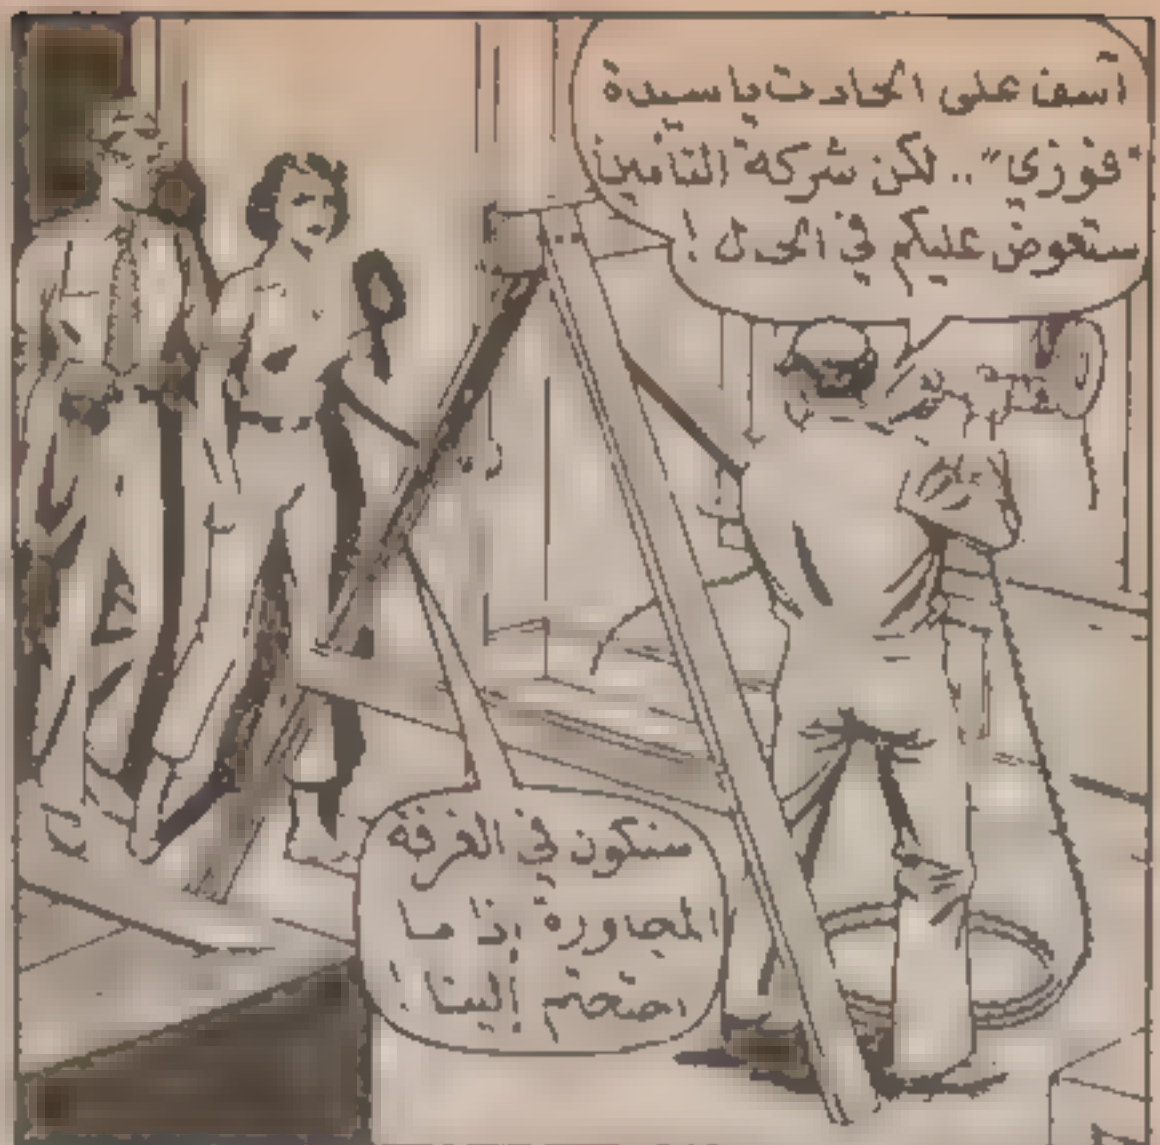 آسف على الحادث يا سيدة
"فوزي" .. لكن شركة التأمين
ستعوض عليكم في الحال !
سنكون في الغرفة
المجاورة إذا ما
احتجتم إلينا !